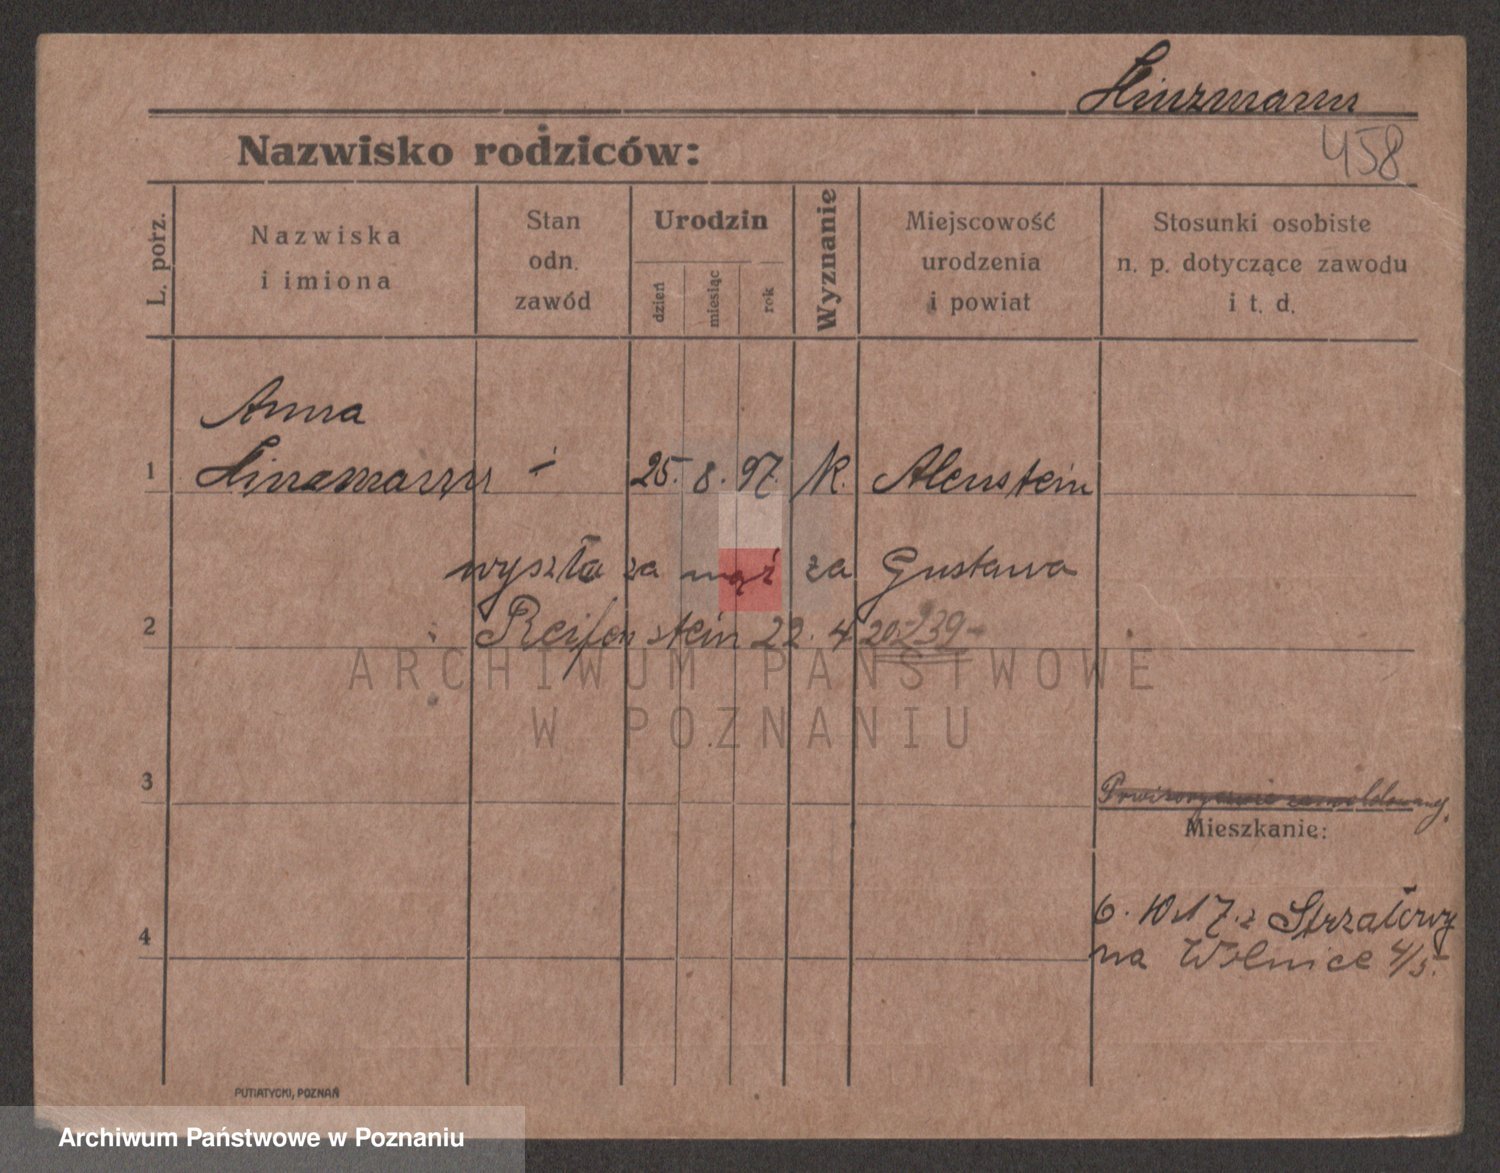 Hinzmann
458
Nazwisko rodziców:
L. porz.
Nazwiska
i imiona
Stan
odn.
zawód
Urodzin
dzień
miesiąc
rok
Wyznanie
Miejscowość
urodzenia
i powiat
Stosunki osobiste
n. p. dotyczące zawodu
i t. d.
Anna
1 Hinzmann i 25. 8. 97. K. Alenstein
wyszła za mąż za Gustawa
2 Reifenstein 22. 4 20 239
ARCHIWUM PAŃSTWOWE
W POZNANIU
3
Mieszkanie:
6. 10 17. z Strzałowy
4
na Wolnice 4/5.
PUTIATYCKI, POZNAŃ
Archiwum Państwowe w Poznaniu